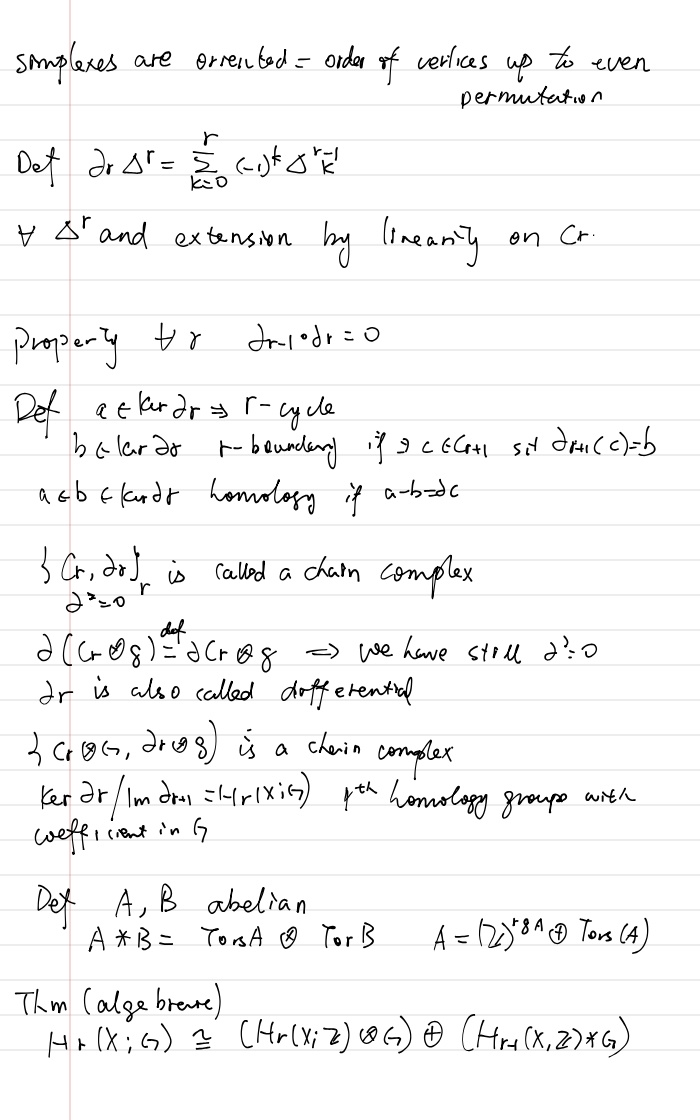 simplexes are orrented = order of vertices up to even
permutation
Def ∂r Δ^r = Σ_{k=0}^{r} (-1)^k Δ^{r-1}_k
∀ Δ^r and extension by linearity on Cr.
property ∀ r ∂r-1 ∘ ∂r = 0
Def a ∈ ker ∂r ⇒ r-cycle
b ∈ ker ∂r r-boundary if ∃ c ∈ Cr+1 s.t ∂r+1(c)=b
a ∈ b ∈ ker ∂r homology if a-b=∂c
{Cr, ∂r}_r is called a chain complex
∂²=0
∂(Cr ⊗ g) =^{def} ∂Cr ⊗ g ⇒ we have still ∂²=0
∂r is also called differential
{Cr ⊗ G, ∂r ⊗ g} is a chain complex
Ker ∂r / Im ∂r+1 = Hr(X;G) rth homology groups with
coefficient in G
Def A, B abelian
A * B = Tors A ⊗ Tor B A = (ℤ)^{rg A} ⊕ Tors (A)
Thm (algebraic)
Hr(X; G) ≅ (Hr(X; ℤ) ⊗ G) ⊕ (Hr-1(X, ℤ) * G)